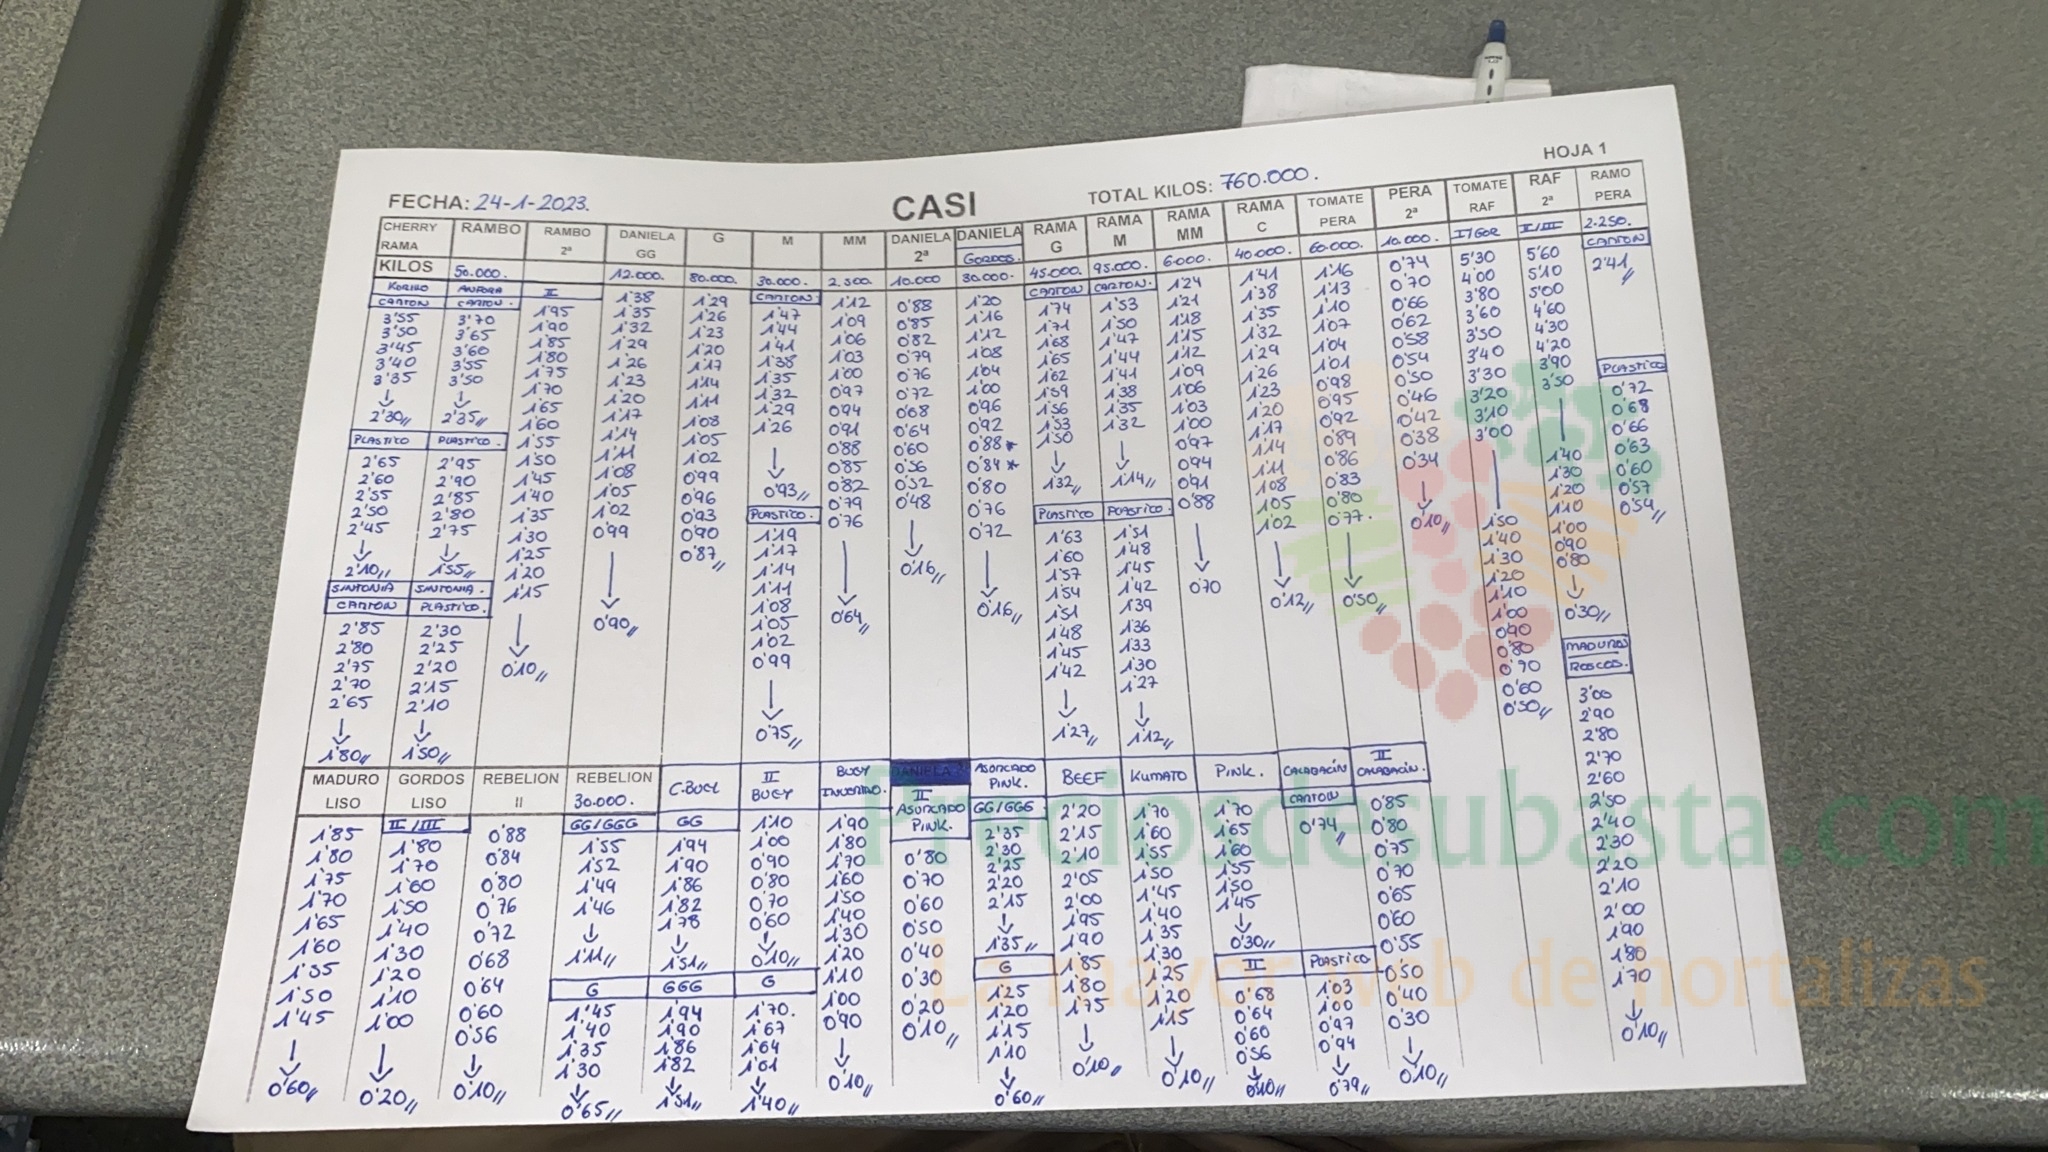 HOJA 1
FECHA: 24-1-2023. CASI TOTAL KILOS: 760.000.
CHERRY RAMA
KILOS
KORINO CARTON
3'55
3'50
3'45
3'40
3'35
2'30
PLASTICO
2'65
2'60
2'55
2'50
2'45
2'10
SINTONIA CARTON
2'85
2'80
2'75
2'70
2'65
1'80
RAMBO
50.000.
ANFORA CARTON.
3'70
3'65
3'60
3'55
3'50
2'35
PLASTICO.
2'95
2'90
2'85
2'80
2'75
1'55
SINTONIA. PLASTICO.
2'30
2'25
2'20
2'15
2'10
1'50
RAMBO 2ª
II
1'95
1'90
1'85
1'80
1'75
1'70
1'65
1'60
1'55
1'50
1'45
1'40
1'35
1'30
1'25
1'20
1'15
0'10
DANIELA GG
12.000.
1'38
1'35
1'32
1'29
1'26
1'23
1'20
1'17
1'14
1'11
1'08
1'05
1'02
0'99
0'90
G
80.000.
1'29
1'26
1'23
1'20
1'17
1'14
1'11
1'08
1'05
1'02
0'99
0'96
0'93
0'90
0'87
M
30.000.
CARTON
1'47
1'44
1'41
1'38
1'35
1'32
1'29
1'26
0'93
PLASTICO.
1'19
1'17
1'14
1'11
1'08
1'05
1'02
0'99
0'75
MM
2.500.
1'12
1'09
1'06
1'03
1'00
0'97
0'94
0'91
0'88
0'85
0'82
0'79
0'76
0'64
DANIELA 2ª
10.000
0'88
0'85
0'82
0'79
0'76
0'72
0'68
0'64
0'60
0'56
0'52
0'48
0'16
DANIELA GORDOS.
30.000.
1'20
1'16
1'12
1'08
1'04
1'00
0'96
0'92
0'88*
0'84*
0'80
0'76
0'72
0'16
RAMA G
45.000.
CARTON
1'74
1'71
1'68
1'65
1'62
1'59
1'56
1'53
1'50
1'32
PLASTICO
1'63
1'60
1'57
1'54
1'51
1'48
1'45
1'42
1'27
RAMA M
95.000.
CARTON.
1'53
1'50
1'47
1'44
1'41
1'38
1'35
1'32
1'14
PLASTICO.
1'51
1'48
1'45
1'42
1'39
1'36
1'33
1'30
1'27
1'12
RAMA MM
6.000.
1'24
1'21
1'18
1'15
1'12
1'09
1'06
1'03
1'00
0'97
0'94
0'91
0'88
0'70
RAMA C
40.000.
1'41
1'38
1'35
1'32
1'29
1'26
1'23
1'20
1'17
1'14
1'11
1'08
1'05
1'02
0'12
TOMATE PERA
60.000.
1'16
1'13
1'10
1'07
1'04
1'01
0'98
0'95
0'92
0'89
0'86
0'83
0'80
0'77.
0'50
PERA 2ª
10.000.
0'74
0'70
0'66
0'62
0'58
0'54
0'50
0'46
0'42
0'38
0'34
0'10
TOMATE RAF
5'30
4'00
3'80
3'60
3'50
3'40
3'30
3'20
3'10
3'00
1'50
1'40
1'30
1'20
1'10
1'00
0'90
0'80
0'70
0'60
0'50
RAF 2ª
II/III
5'60
5'10
5'00
4'60
4'30
4'20
3'90
3'50
1'40
1'30
1'20
1'10
1'00
0'90
0'80
0'30
MADUROS ROSCOS.
3'00
2'90
2'80
2'70
2'60
2'50
2'40
2'30
2'20
2'10
2'00
1'90
1'80
1'70
0'10
RAMO PERA
2.250.
CARTON
2'41
PLASTICO
0'72
0'68
0'66
0'63
0'60
0'57
0'54
MADURO LISO
1'85
1'80
1'75
1'70
1'65
1'60
1'55
1'50
1'45
0'60
GORDOS LISO
II/III
1'80
1'70
1'60
1'50
1'40
1'30
1'20
1'10
1'00
0'20
REBELION II
0'88
0'84
0'80
0'76
0'72
0'68
0'64
0'60
0'56
0'10
REBELION
30.000.
GG/GGG
1'55
1'52
1'49
1'46
1'11
G
1'45
1'40
1'35
1'30
0'65
C.BUEY
GG
1'94
1'90
1'86
1'82
1'78
1'51
GGG
1'94
1'90
1'86
1'82
1'51
II BUEY
1'10
1'00
0'90
0'80
0'70
0'60
0'10
G
1'70.
1'67
1'64
1'61
1'40
BUEY
1'90
1'80
1'70
1'60
1'50
1'40
1'30
1'20
1'10
1'00
0'90
0'10
DANIELA
II ASURCADO PINK.
0'80
0'70
0'60
0'50
0'40
0'30
0'20
0'10
ASURCADO PINK.
GG/GGG
2'35
2'30
2'25
2'20
2'15
1'35
G
1'25
1'20
1'15
1'10
0'60
BEEF
2'20
2'15
2'10
2'05
2'00
1'95
1'90
1'85
1'80
1'75
0'10
KUMATO
1'70
1'60
1'55
1'50
1'45
1'40
1'35
1'30
1'25
1'20
1'15
0'10
PINK.
1'70
1'65
1'60
1'55
1'50
1'45
0'30
II
0'68
0'64
0'60
0'56
0'10
CALABACÍN
CARTON
0'74
PLASTICO
1'03
1'00
0'97
0'94
0'79
II CALABACÍN.
0'85
0'80
0'75
0'70
0'65
0'60
0'55
0'50
0'40
0'30
0'10
Preciosdesubasta.com
La mayor web de hortalizas